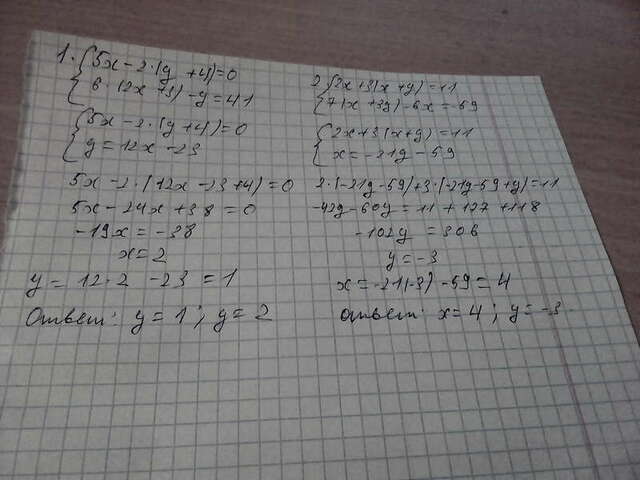 1. {5x - 2·(y + 4) = 0
{6·(2x + 3) - y = 41
{5x - 2·(y + 4) = 0
{y = 12x - 23
5x - 2·(12x - 23 + 4) = 0
5x - 24x + 38 = 0
-19x = -38
x = 2
y = 12·2 - 23 = 1
Ответ: y = 1; y = 2
2 {2x + 3(x + y) = 11
{7(x + 3y) - 6x = -59
{2x + 3(x + y) = 11
{x = -21y - 59
2·(-21y - 59) + 3·(-21y - 59 + y) = 11
-42y - 60y = 11 + 177 + 118
-102y = 306
y = -3
x = -21(-3) - 59 = 4
Ответ: x = 4; y = -3